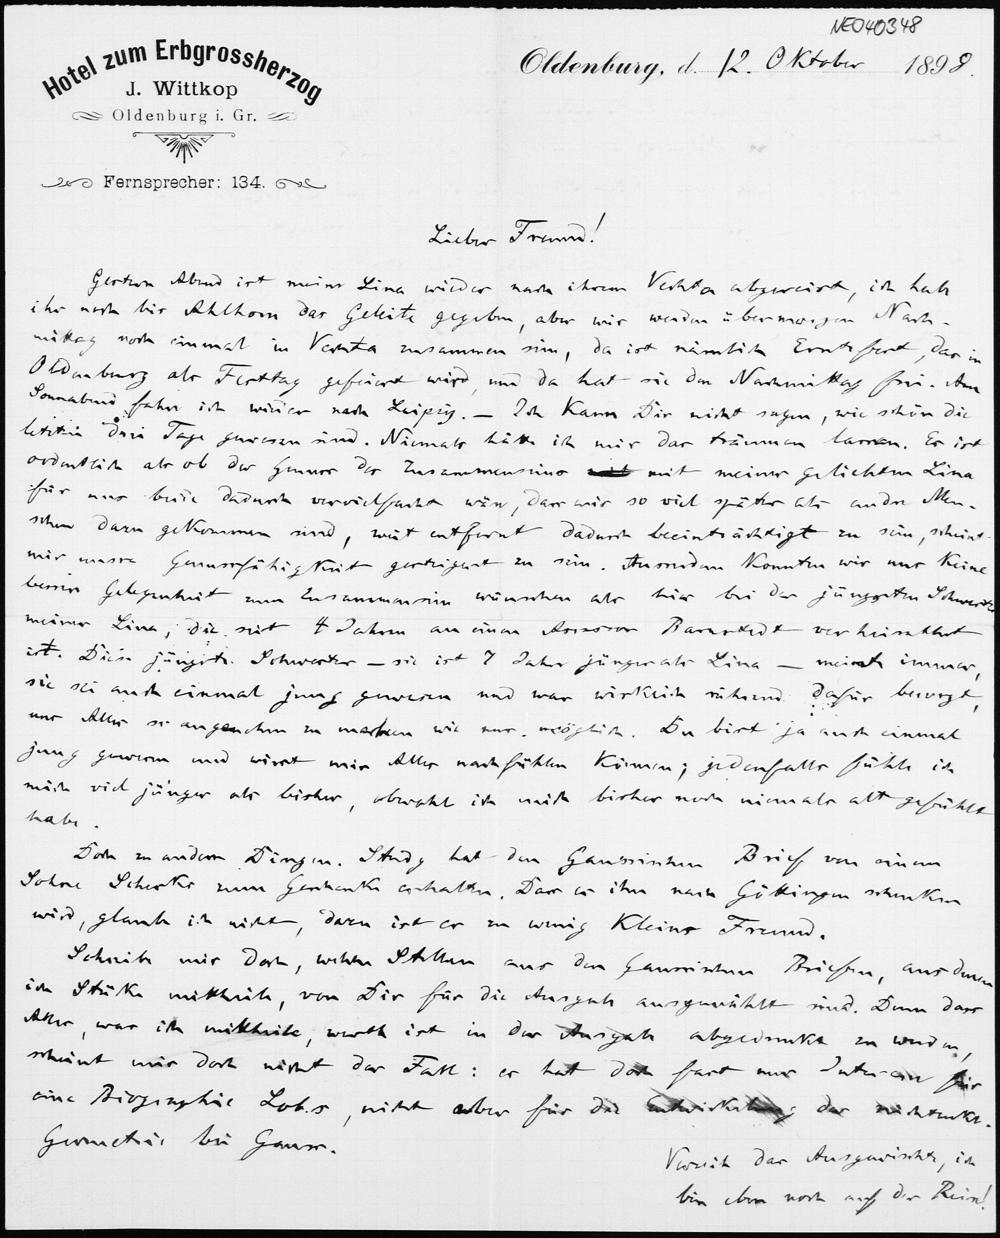 NEO40348
Hotel zum Erbgrossherzog
J. Wittkop
Oldenburg i. Gr.
Fernsprecher: 134.
Oldenburg, d. 12. Oktober 1898.
Lieber Freund!
Gestern Abend ist meine Lina wieder nach ihrem Vechta abgereist, ich habe
ihr noch bis Ahlhorn das Geleite gegeben, aber wir werden übermorgen Nach-
mittag noch einmal in Vechta zusammen sein, da ist nämlich Erntefest, das in
Oldenburg als Festtag gefeiert wird, und da hat sie den Nachmittag frei. Am
Sonnabend fahre ich wieder nach Leipzig. – Ich kann Dir nicht sagen, wie schön die
letzten drei Tage gewesen sind. Niemals hätte ich mir das träumen lassen. Es ist
ordentlich als ob der Genuss des Zusammenseins mit meiner geliebten Lina
für uns beide dadurch vervielfacht wäre, dass wir so viel später als andre Men-
schen dazu gekommen sind, weit entfernt dadurch beeinträchtigt zu sein, scheint
mir unsre Genussfähigkeit gesteigert zu sein. Ausserdem konnten wir uns keine
bessere Gelegenheit zum Zusammensein wünschen als hier bei der jüngsten Schwester
meiner Lina, die seit 4 Jahren an einen Assessor Barnstedt verheirathet
ist. Diese jüngste Schwester – sie ist 7 Jahr jünger als Lina – meinte immer,
sie sei auch einmal jung gewesen und war wirklich rührend dafür besorgt,
uns Alles so angenehm zu machen wie nur möglich. Du bist ja auch einmal
jung gewesen und wirst mir Alles nachfühlen können; jedenfalls fühle ich
mich viel jünger als bisher, obwohl ich mich bisher noch niemals alt gefühlt
habe.
Doch zu andern Dingen. Study hat den Gaussischen Brief von einem
Sohne Scherks zum Geschenke erhalten. Dass er ihn nach Göttingen schenken
wird, glaube ich nicht, dazu ist er zu wenig Kleins Freund.
Schreibe mir doch, welche Stellen aus den Gaussischen Briefen, aus denen
ich Stücke mittheile, von Dir für die Ausgabe ausgewählt sind. Denn dass
Alles, was ich mittheile, werth ist in der Ausgabe abgedruckt zu werden,
scheint mir doch nicht der Fall: es hat doch fast nur Interesse für
eine Biographie Lob.s, nicht aber für die Entwickelung der nichteukl.
Geometrie bei Gauss.
Verzeih das Ausgewischte, ich
bin eben noch auf der Reise!